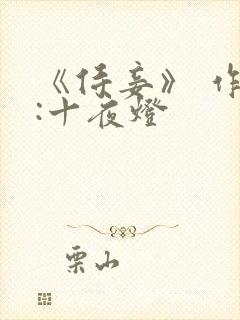 《侍妾》 作
:十夜燈
栗山